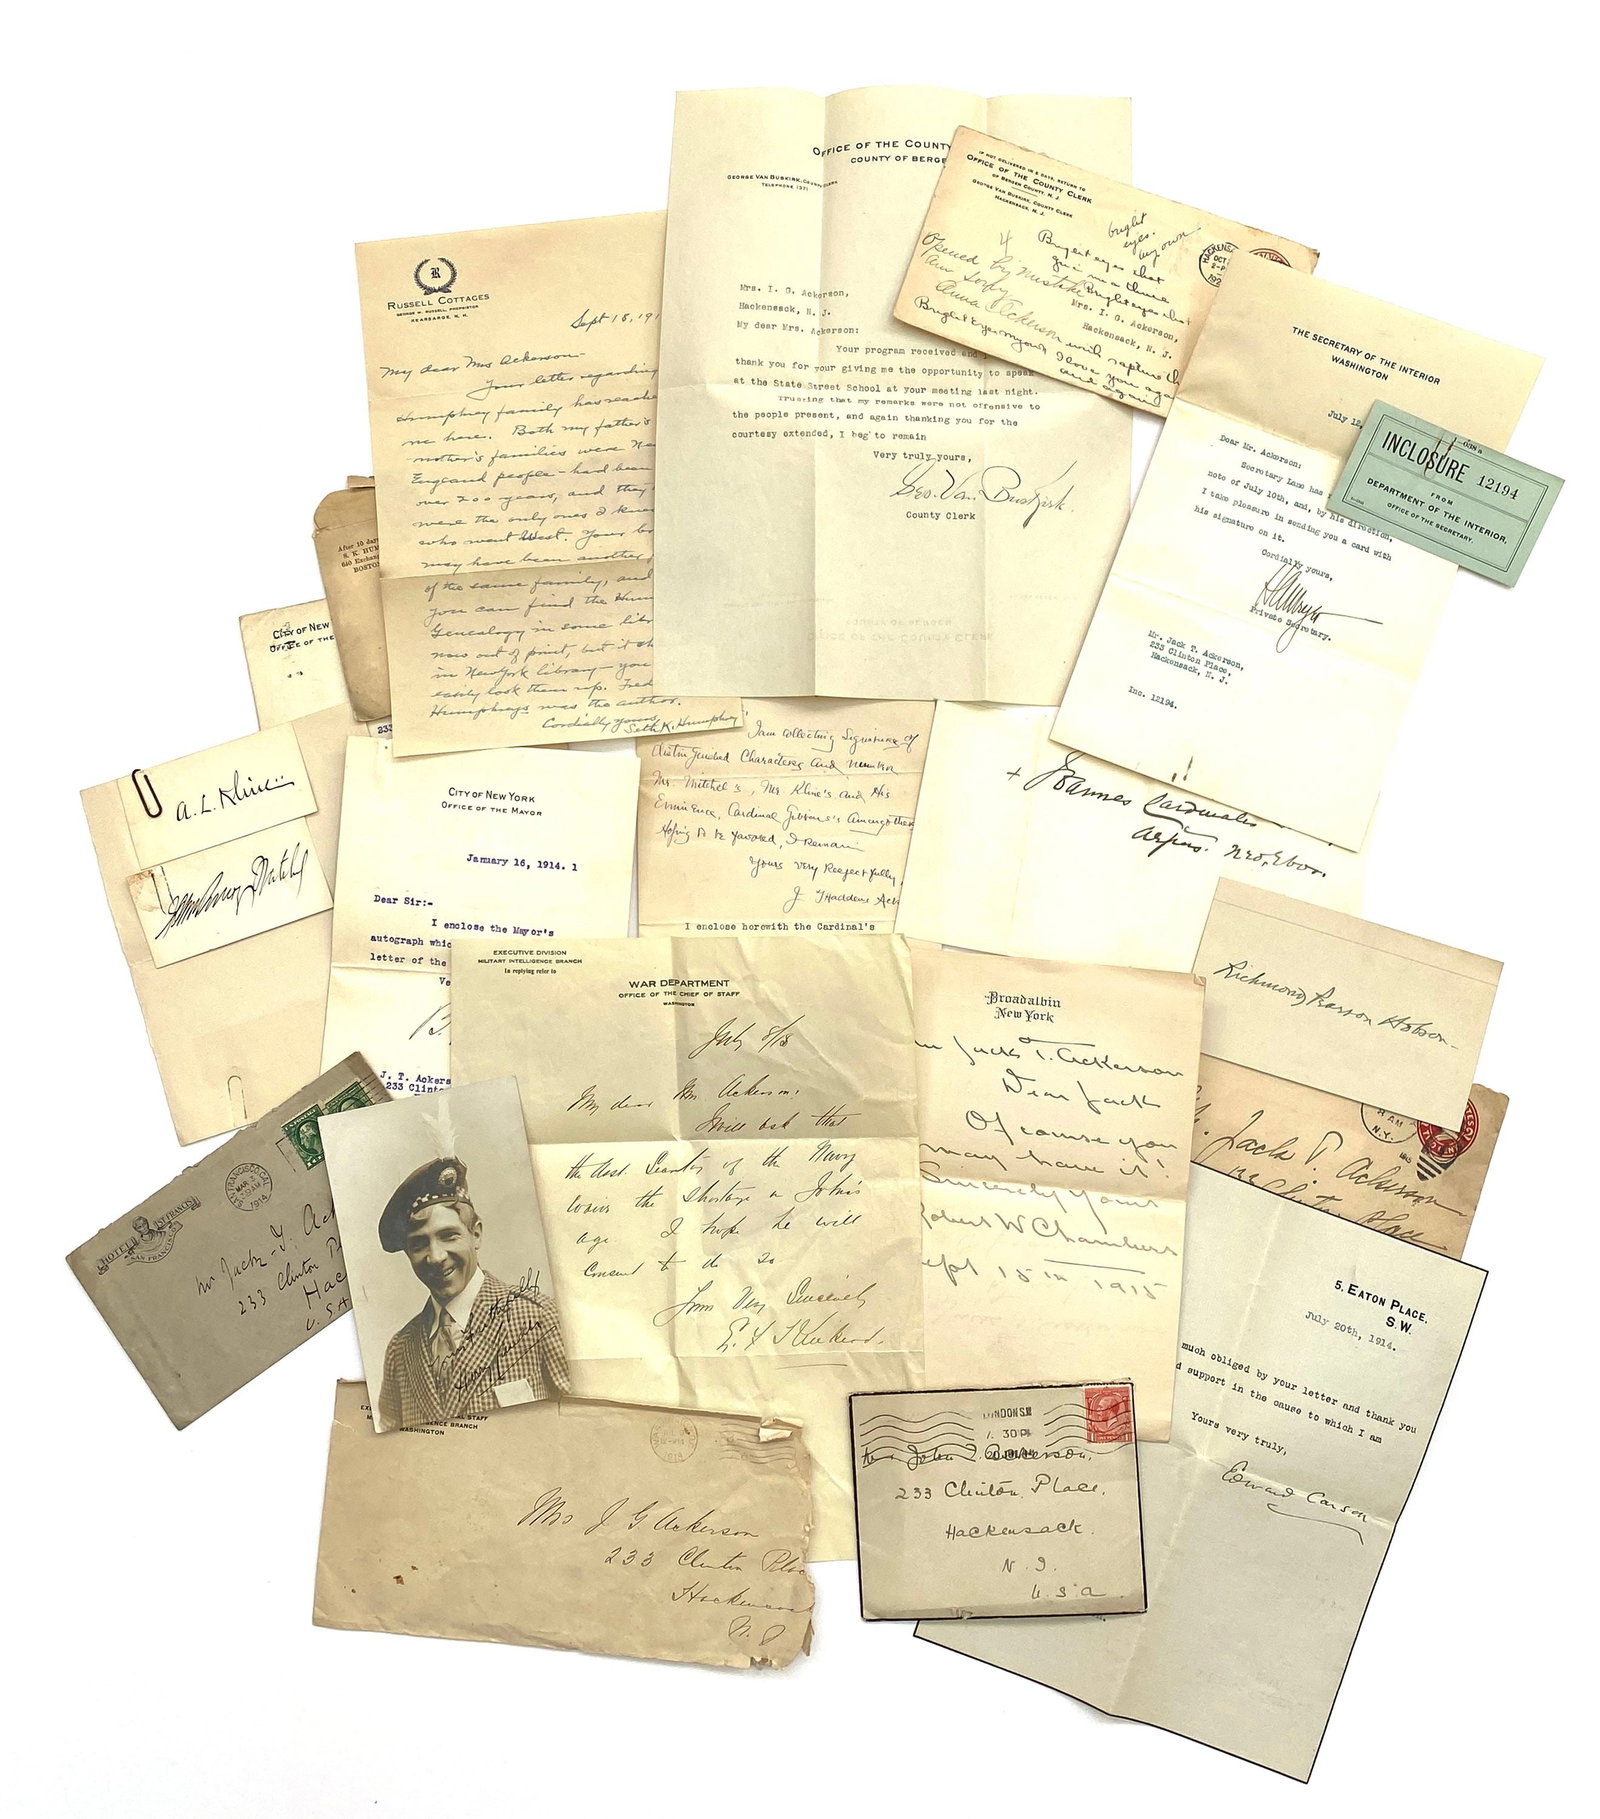 OFFICE OF THE COUNTY
COUNTY OF BERGE
GEORGE VAN BUSKIRK, COUNTY CLERK
TELEPHONE 1371
Mrs. I. G. Ackerson,
Hackensack, N. J.
My dear Mrs. Ackerson:
Your program received and I
thank you for your giving me the opportunity to speak
at the State Street School at your meeting last night.
Trusting that my remarks were not offensive to
the people present, and again thanking you for the
courtesy extended, I beg to remain
Very truly yours,
Geo. Van Buskirk.
County Clerk
IF NOT DELIVERED IN 5 DAYS, RETURN TO
OFFICE OF THE COUNTY CLERK
OF BERGEN COUNTY, N. J.
GEORGE VAN BUSKIRK, COUNTY CLERK
HACKENSACK, N. J.
bright
eyes.
my own.
4
Bright eyes that
Opened by mistake
Brighteyes that
am sorry
Anna Ackerson
Mrs. I. G. Ackerson,
Hackensack, N. J.
Bright Eyes my own I love you again
and again
HACKENSA
OCT
2-P
192
THE SECRETARY OF THE INTERIOR
WASHINGTON
July 18,
Dear Mr. Ackerson:
Secretary Lane has
note of July 10th, and, by his direction,
I take pleasure in sending you a card with
his signature on it.
Cordially yours,
Private Secretary.
Mr. Jack T. Ackerson,
233 Clinton Place,
Hackensack, N. J.
Inc. 12194.
—038 a
INCLOSURE 12194
FROM
DEPARTMENT OF THE INTERIOR,
OFFICE OF THE SECRETARY.
R
RUSSELL COTTAGES
GEORGE W. RUSSELL, PROPRIETOR
KEARSARGE, N. H.
Sept 18, 191
My dear Mrs Ackerson—
Your letter regarding
Humphrey family has reache
me here. Both my father's
mother's families were Ne
England people—had been
over 200 years, and they
were the only ones I knew
who went West. Your br
may have been another
of the same family, and
you can find the Hum
Genealogy in some libr
now out of print, but it sh
in New York library—you
easily look them up. Fred
Humphreys was the author.
Cordially yours
Seth K. Humphrey
After 10 day
S. K. HUM
640 Exchan
BOSTON
CITY OF NEW
OFFICE OF THE
233
A. L. Kline
John Purroy Mitchel
CITY OF NEW YORK
OFFICE OF THE MAYOR
January 16, 1914. 1
Dear Sir:-
I enclose the Mayor's
autograph whic
letter of the
Ve
J. T. Ackers
233 Clinto
I am collecting Signatures of
distinguished Characters and number
Mr. Mitchel's, Mr. Kline's and His
Eminence, Cardinal Gibbons's Amongst them
Hoping to be favored, I remain
Yours Very Respectfully,
J Thaddeus Ack
I enclose herewith the Cardinal's
+ Joannes Cardinalis
Arpus. Neo. Ebor.
Richmond Pearson Hobson—
EXECUTIVE DIVISION
MILITARY INTELLIGENCE BRANCH
In replying refer to
WAR DEPARTMENT
OFFICE OF THE CHIEF OF STAFF
WASHINGTON
July 8/18
My dear Mrs. Ackerson:
I will ask that
the Asst. Secretary of the Navy
waive the shortage in John's
age. I hope he will
consent to do so
Yours Very Sincerely
Broadalbin
New York
Jack T. Ackerson
Dear Jack
Of course you
may have it!
Sincerely Yours
Robert W Chambers
Sept 15th 1915
8 AM
N.Y.
Jack T. Ackerson
133 Clinton Place
HOTEL ST. FRANCIS
SAN FRANCISCO
SAN FRANCISCO, CAL.
MAR 5
1914
Mr Jack T. Ack
233 Clinton P
Hac
U. S. A
Yours
Harry Lauder
EX
M
AL STAFF
GENCE BRANCH
WASHINGTON
Mrs J G Ackerson
233 Clinton Place
Hackensack
N. J
LONDON S.W
7. 30 PM
John T. Ackerson,
233 Clinton Place,
Hackensack.
N. J.
U. S. A
5, EATON PLACE,
S.W.
July 20th, 1914.
much obliged by your letter and thank you
d support in the cause to which I am
Yours very truly,
Edward Carson